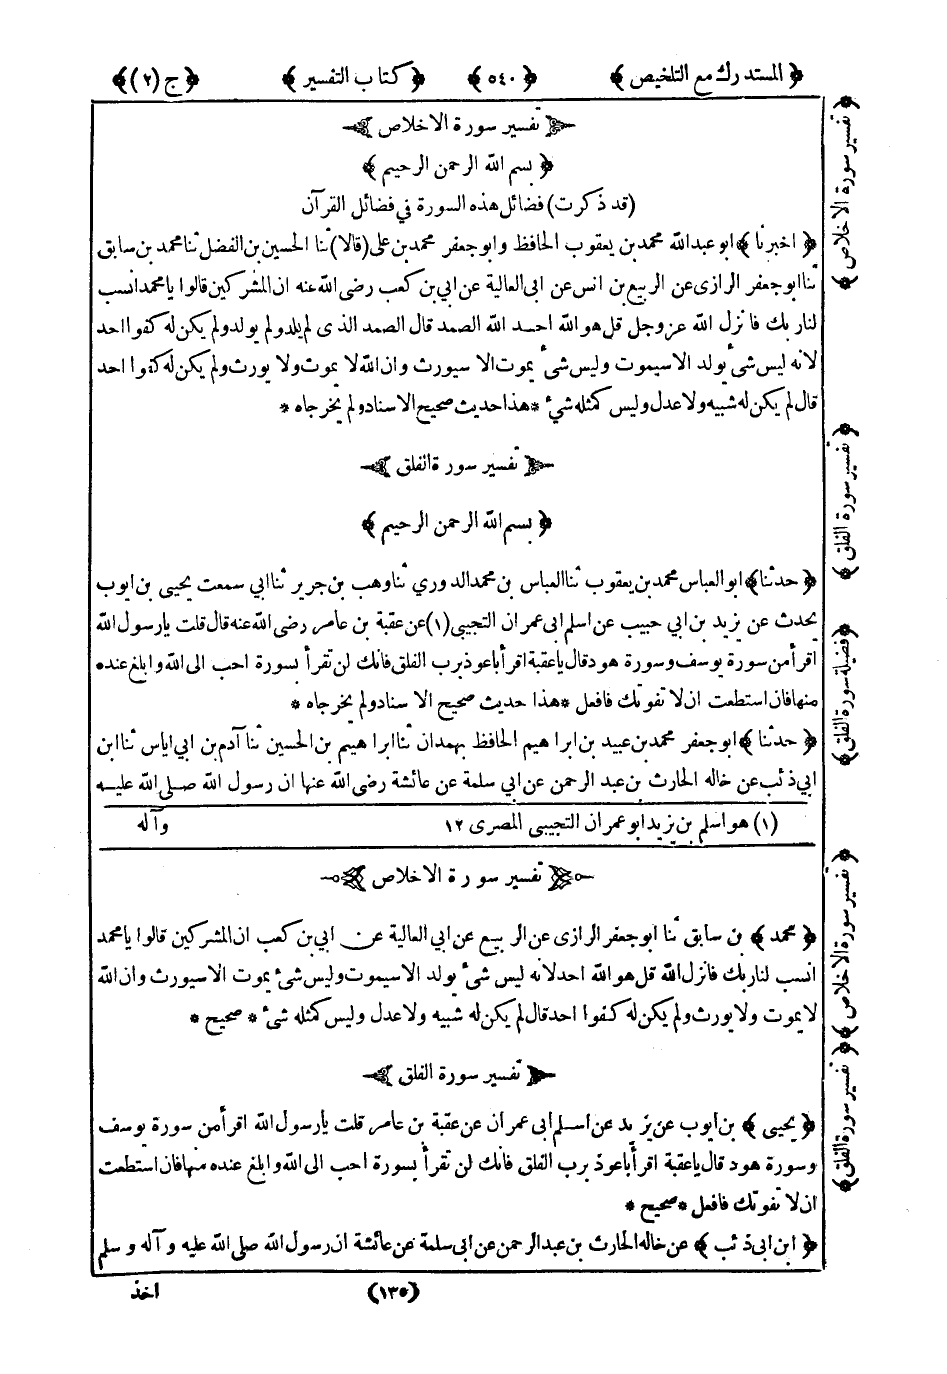 ﴿ المستدرك مع التلخيص ﴾ ﴿ ٥٤٠ ﴾ ﴿ كتاب التفسير ﴾ ﴿ ج (٢) ﴾
تفسير سورة الاخلاص
﴿ بسم الله الرحمن الرحيم ﴾
(قد ذكرت) فضائل هذه السورة في فضائل القرآن
﴿ اخبرنا ﴾ ابو عبدالله محمد بن يعقوب الحافظ وابو جعفر محمد بن على (قالا) ثنا الحسين بن الفضل ثنا محمد بن سابق
ثنا ابو جعفر الرازى عن الربيع بن انس عن ابى العالية عن ابي بن كعب رضى الله عنه ان المشركين قالوا يا محمد انسب
لنا ربك فانزل الله عز وجل قل هو الله احد الله الصمد قال الصمد الذى لم يلد ولم يولد ولم يكن له كفوا احد
لانه ليس شئ يولد الا سيموت وليس شئ يموت الا سيورث وان الله لا يموت ولا يورث ولم يكن له كفوا احد
قال لم يكن له شبيه ولا عدل وليس كمثله شئ * هذا حديث صحيح الاسناد ولم يخرجاه *
تفسير سورة الفلق
﴿ بسم الله الرحمن الرحيم ﴾
﴿ حدثنا ﴾ ابو العباس محمد بن يعقوب ثنا العباس بن محمد الدوري ثنا وهب بن جرير ثنا ابي سمعت يحيى بن ايوب
يحدث عن يزيد بن ابي حبيب عن اسلم ابى عمران التجيبى (١) عن عقبة بن عامر رضى الله عنه قال قلت يا رسول الله
اقرأ من سورة يوسف وسورة هود قال يا عقبة اقرأ باعوذ برب الفلق فانك لن تقرأ بسورة احب الى الله وابلغ عنده
منها فان استطعت ان لا تفوتك فافعل * هذا حديث صحيح الاسناد ولم يخرجاه *
﴿ حدثنا ﴾ ابو جعفر محمد بن عبيد بن ابراهيم الحافظ بهمدان ثنا ابراهيم بن الحسين ثنا آدم بن ابي اياس ثنا ابن
ابي ذئب عن خاله الحارث بن عبد الرحمن عن ابي سلمة عن عائشة رضى الله عنها ان رسول الله صلى الله عليه
وآله
(١) هو اسلم بن يزيد ابو عمران التجيبى المصرى ١٢
تفسير سورة الاخلاص
﴿ محمد ﴾ بن سابق ثنا ابو جعفر الرازى عن الربيع عن ابي العالية عن ابي بن كعب ان المشركين قالوا يا محمد
انسب لنا ربك فانزل الله قل هو الله احد لانه ليس شئ يولد الا سيموت وليس شئ يموت الا سيورث وان الله
لا يموت ولا يورث ولم يكن له كفوا احد قال لم يكن له شبيه ولا عدل وليس كمثله شئ * صحيح *
تفسير سورة الفلق
﴿ يحيى ﴾ بن ايوب عن يزيد عن اسلم ابى عمران عن عقبة بن عامر قلت يا رسول الله اقرأ من سورة يوسف
وسورة هود قال يا عقبة اقرأ باعوذ برب الفلق فانك لن تقرأ بسورة احب الى الله وابلغ عنده منها فان استطعت
ان لا تفوتك فافعل * صحيح *
﴿ ابن ابى ذئب ﴾ عن خاله الحارث بن عبد الرحمن عن ابى سلمة عن عائشة ان رسول الله صلى الله عليه وآله وسلم
(١٣٥)
اخذ
﴿ تفسير سورة الاخلاص ﴾
﴿ تفسير سورة الفلق ﴾
﴿ فضيلة سورة الفلق ﴾
﴿ تفسير سورة الاخلاص ﴾
﴿ تفسير سورة الفلق ﴾